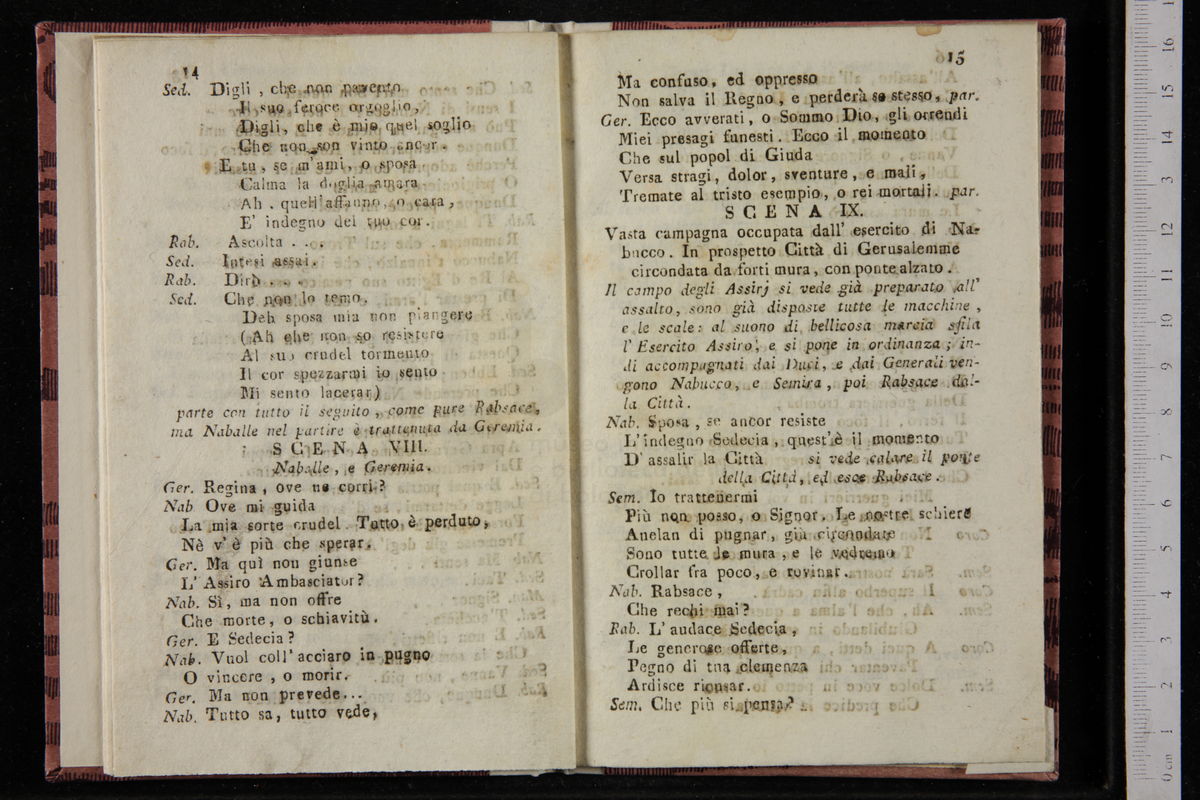 14
Sed. Digli , che non pavento
Il suo feroce orgoglio,
Digli, che è mio quel soglio
Che non son vinto ancor.
E tu , se m'ami, o sposa
Calma la doglia amara
Ah . quell'affanno, o cara,
E' indegno del tuo cor.
Rab. Ascolta . . .
Sed. Intesi assai.
Rab. Dirò . . .
Sed. Che non lo temo.
Deh sposa mia non piangere
( Ah che non so resistere
Al suo crudel tormento
Il cor spezzarmi io sento
Mi sento lacerar )
parte con tutto il seguito , come pure Rabsace,
ma Naballe nel partire è trattenuta da Geremia.
SCENA VIII.
Naballe , e Geremia.
Ger. Regina , ove ne corri?
Nab Ove mi guida
La mia sorte crudel. Tutto è perduto,
Nè v'è più che sperar.
Ger. Ma quì non giunse
L' Assiro Ambasciator?
Nab. Sì, ma non offre
Che morte, o schiavitù.
Ger. E Sedecia?
Nab. Vuol coll'acciaro in pugno
O vincere , o morir.
Ger. Ma non prevede...
Nab. Tutto sa, tutto vede,
15
Ma confuso, ed oppresso
Non salva il Regno, e perderà se stesso, par.
Ger. Ecco avverati, o Sommo Dio, gli orrendi
Miei presagi funesti. Ecco il momento
Che sul popol di Giuda
Versa stragi, dolor, sventure, e mali,
Tremate al tristo esempio, o rei mortali. par.
SCENA IX.
Vasta campagna occupata dall' esercito di Na-
bucco. In prospetto Città di Gerusalemme
circondata da forti mura, con ponte alzato.
Il campo degli Assirj si vede già preparato all'
assalto, sono già disposte tutte le macchine,
e le scale: al suono di bellicosa marcia sfila
l' Esercito Assiro, e si pone in ordinanza; in-
di accompagnati dai Duci, e dai Generali ven-
gono Nabucco, e Semira, poi Rabsace dal-
la Città.
Nab. Sposa, se ancor resiste
L'indegno Sedecia, quest'è il momento
D' assalir la Città si vede calare il ponte
della Città, ed esce Rabsace.
Sem. Io trattenermi
Più non posso, o Signor. Le nostre schiere
Anelan di pugnar, già circondate
Sono tutte le mura, e le vedremo
Crollar fra poco, e rovinar.
Nab. Rabsace,
Che rechi mai?
Rab. L' audace Sedecia,
Le generose offerte,
Pegno di tua clemenza
Ardisce ricusar.
Sem. Che più si pensa?